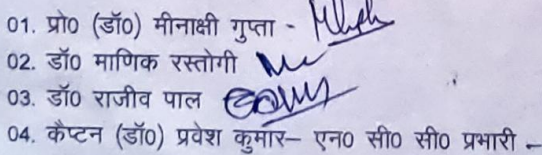 01. प्रो0 (डॉ0) मीनाक्षी गुप्ता -
02. डॉ0 माणिक रस्तोगी
03. डॉ0 राजीव पाल
04. कैप्टन (डॉ0) प्रवेश कुमार– एन0 सी0 सी0 प्रभारी -